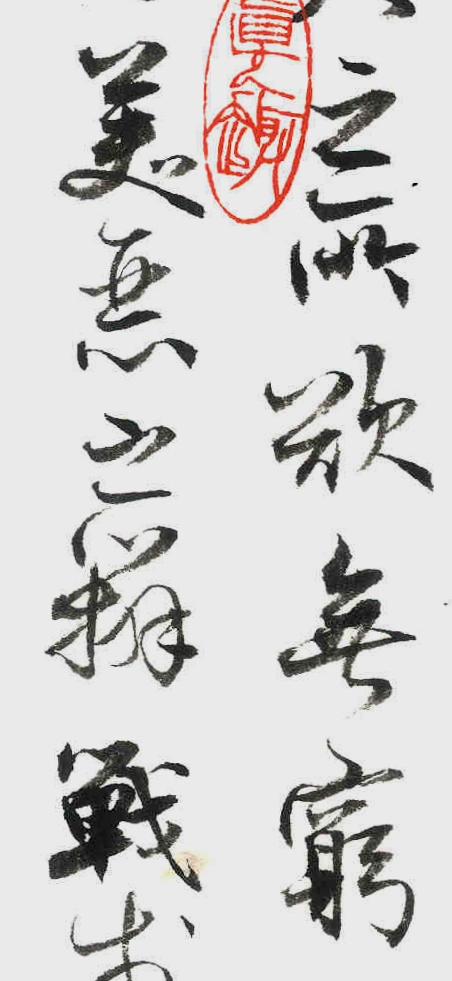 之所欲無窮
美惡之辨戰